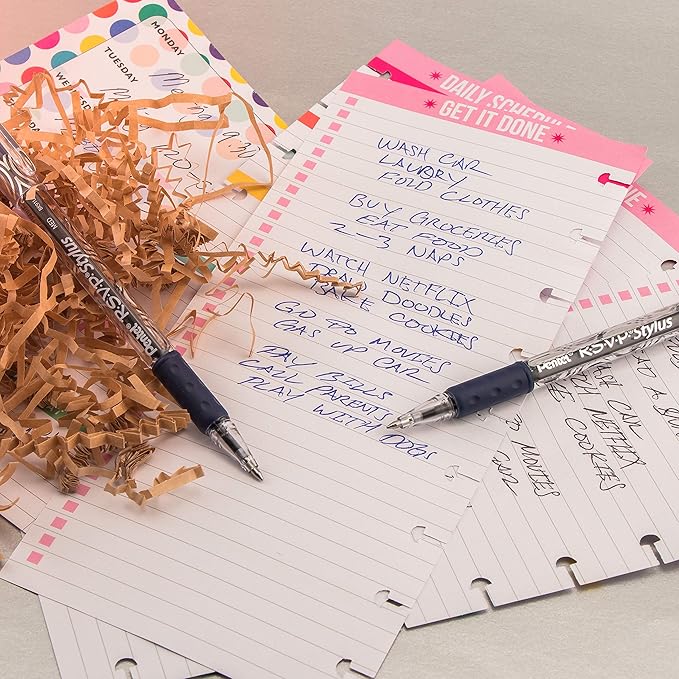 MONDAY
TUESDAY
DAILY SCHEDULE
GET IT DONE
WASH CAR
LAUDRY
FOLD CLOTHES
BUY GROCERIES
EAT FOOD
2-3 NAPS
WATCH NETFLIX
DRAW DOODLES
BAKE COOKIES
GO TO MOVIES
GAS UP CAR
PAY BILLS
CALL PARENTS
PLAY WITH DOGS
MED
Pentel R.S.V.P. Stylus
Pentel R.S.V.P. Stylus
NE
WASH CAR
WATCH NETFLIX
COOKIES
MOVIES
CAR